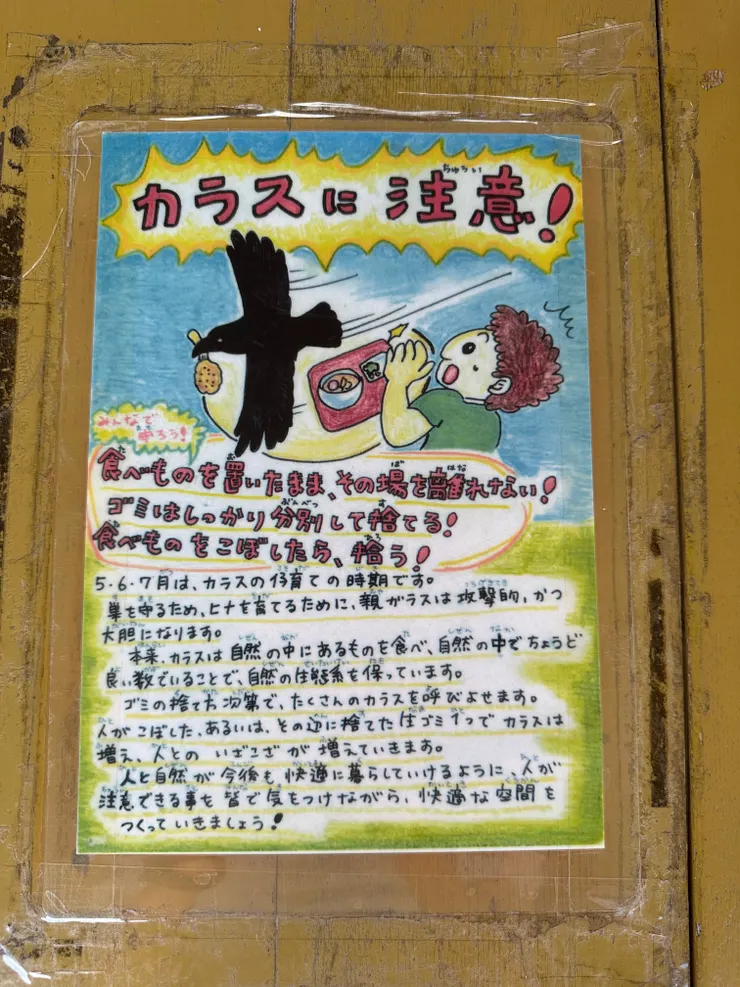 カラスに注意!
みんなで
守ろう!
食べものを置いたまま、その場を離れない!
ゴミはしっかり分別して捨てる!
食べものをこぼしたら、拾う!
5・6・7月は、カラスの仔育ての時期です。
巣を守るため、ヒナを育てるために、親ガラスは攻撃的、かつ
大胆になります。
本来、カラスは自然の中にあるものを食べ、自然の中でちょうど
良い数でいることで、自然の生態系を保っています。
ゴミの捨て方次第で、たくさんのカラスを呼びよせます。
人がこぼした、あるいは、その辺に捨てた生ゴミ1つでカラスは
増え、人との いざこざが増えていきます。
人と自然が今後も快適に暮らしていけるように、人が
注意できる事を皆で気をつけながら、快適な空間を
つくっていきましょう!